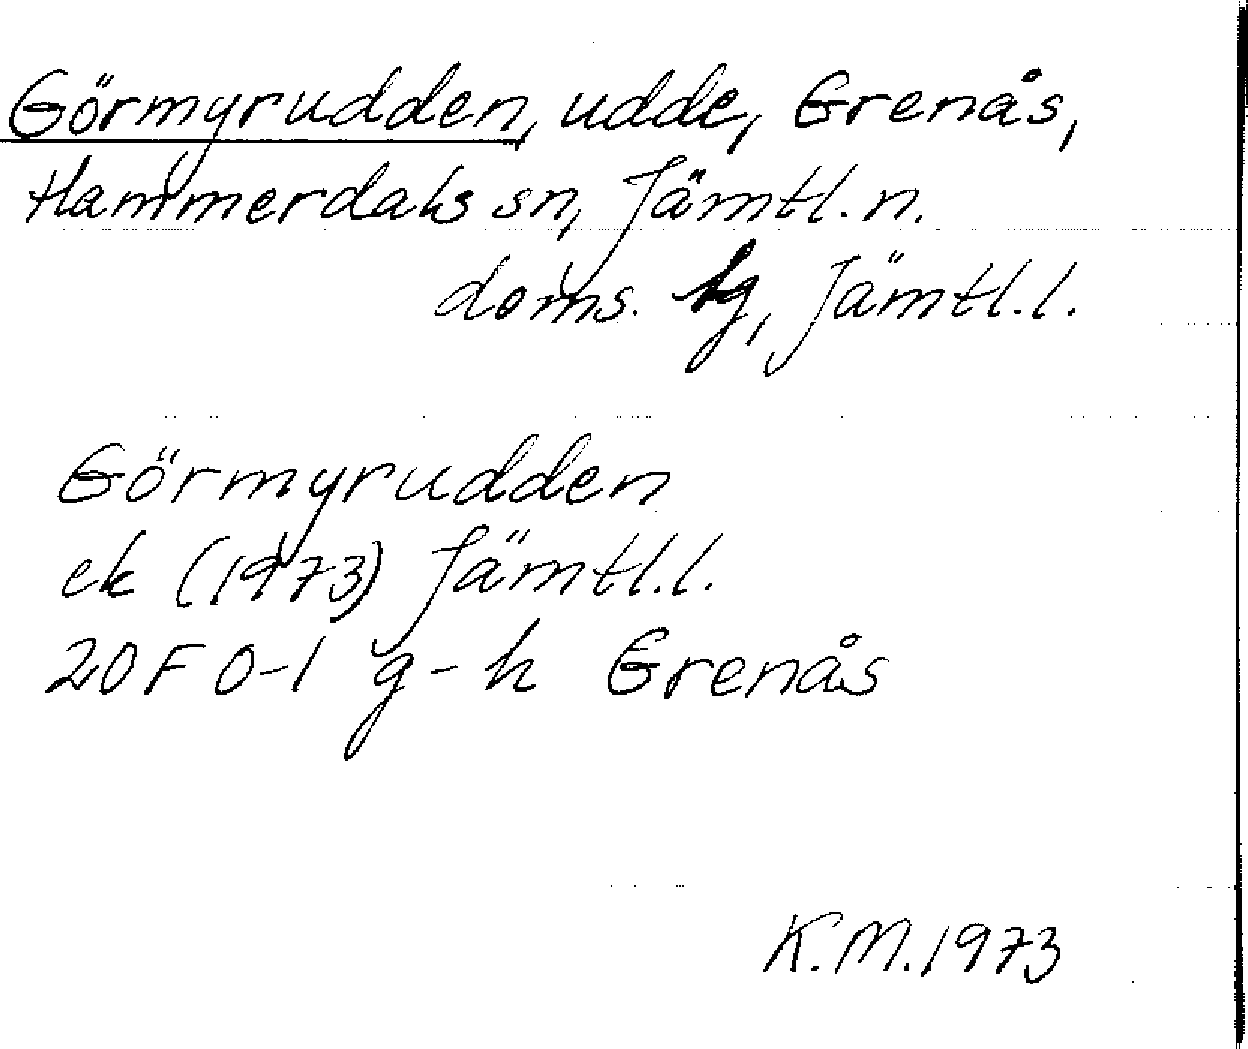 Görmyrudden, udde, Grenås,
Hammerdals sn, Jämtl. n.
doms. tg, Jämtl. l.
Görmyrudden
ek (1973) Jämtl. l.
20F 0-1 g-h Grenås
K.M. 1973